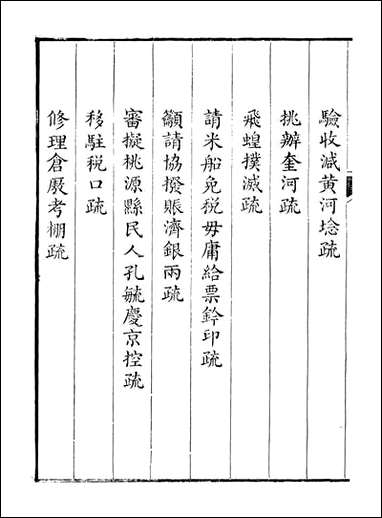 驗收減黄河埝疏
挑辦奎河疏
飛蝗撲滅疏
請米船免税毋庸給票鈐印疏
籲請協撥賑濟銀兩疏
審擬桃源縣民人孔毓慶京控疏
移駐税口疏
修理倉厫考棚疏